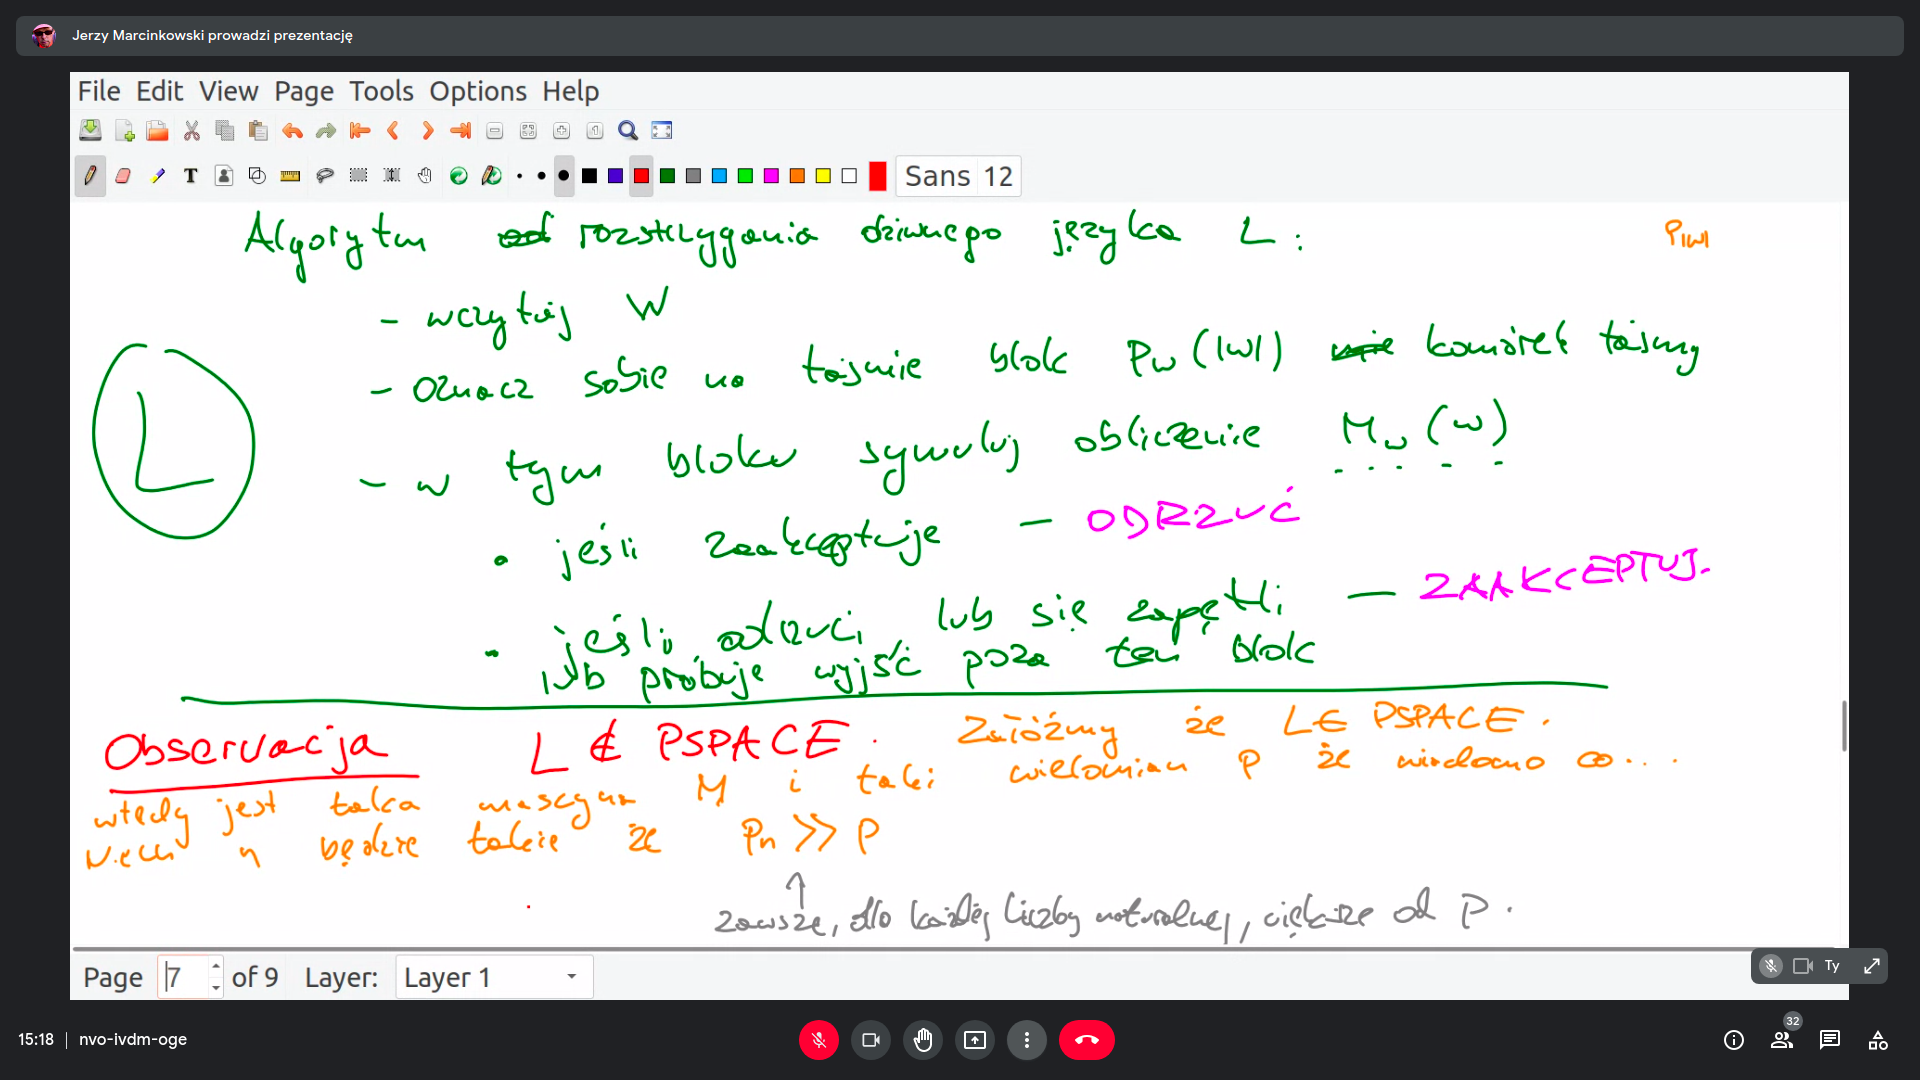 Jerzy Marcinkowski prowadzi prezentację
File Edit View Page Tools Options Help
T Sans 12
Algorytm rozstrzygania dziwnego języka L :
P|w|
- wczytaj w
- oznacz sobie na taśmie blok Pw(|w|) komórek taśmy
L
- w tym bloku symuluj obliczenie Mw(w)
• jeśli zaakceptuje — ODRZUĆ
• jeśli odrzuci lub się zapętli — ZAAKCEPTUJ.
lub próbuje wyjść poza ten blok
Observacja L ∉ PSPACE. Załóżmy że L∈ PSPACE.
wtedy jest taka maszyna M i taki wielomian p że wiadomo co....
Niech n będzie takie że Pn >> p
↑
zawsze, dla każdej liczby naturalnej, większe od p.
Page 7 of 9 Layer: Layer 1
Ty
15:18 | nvo-ivdm-oge
32